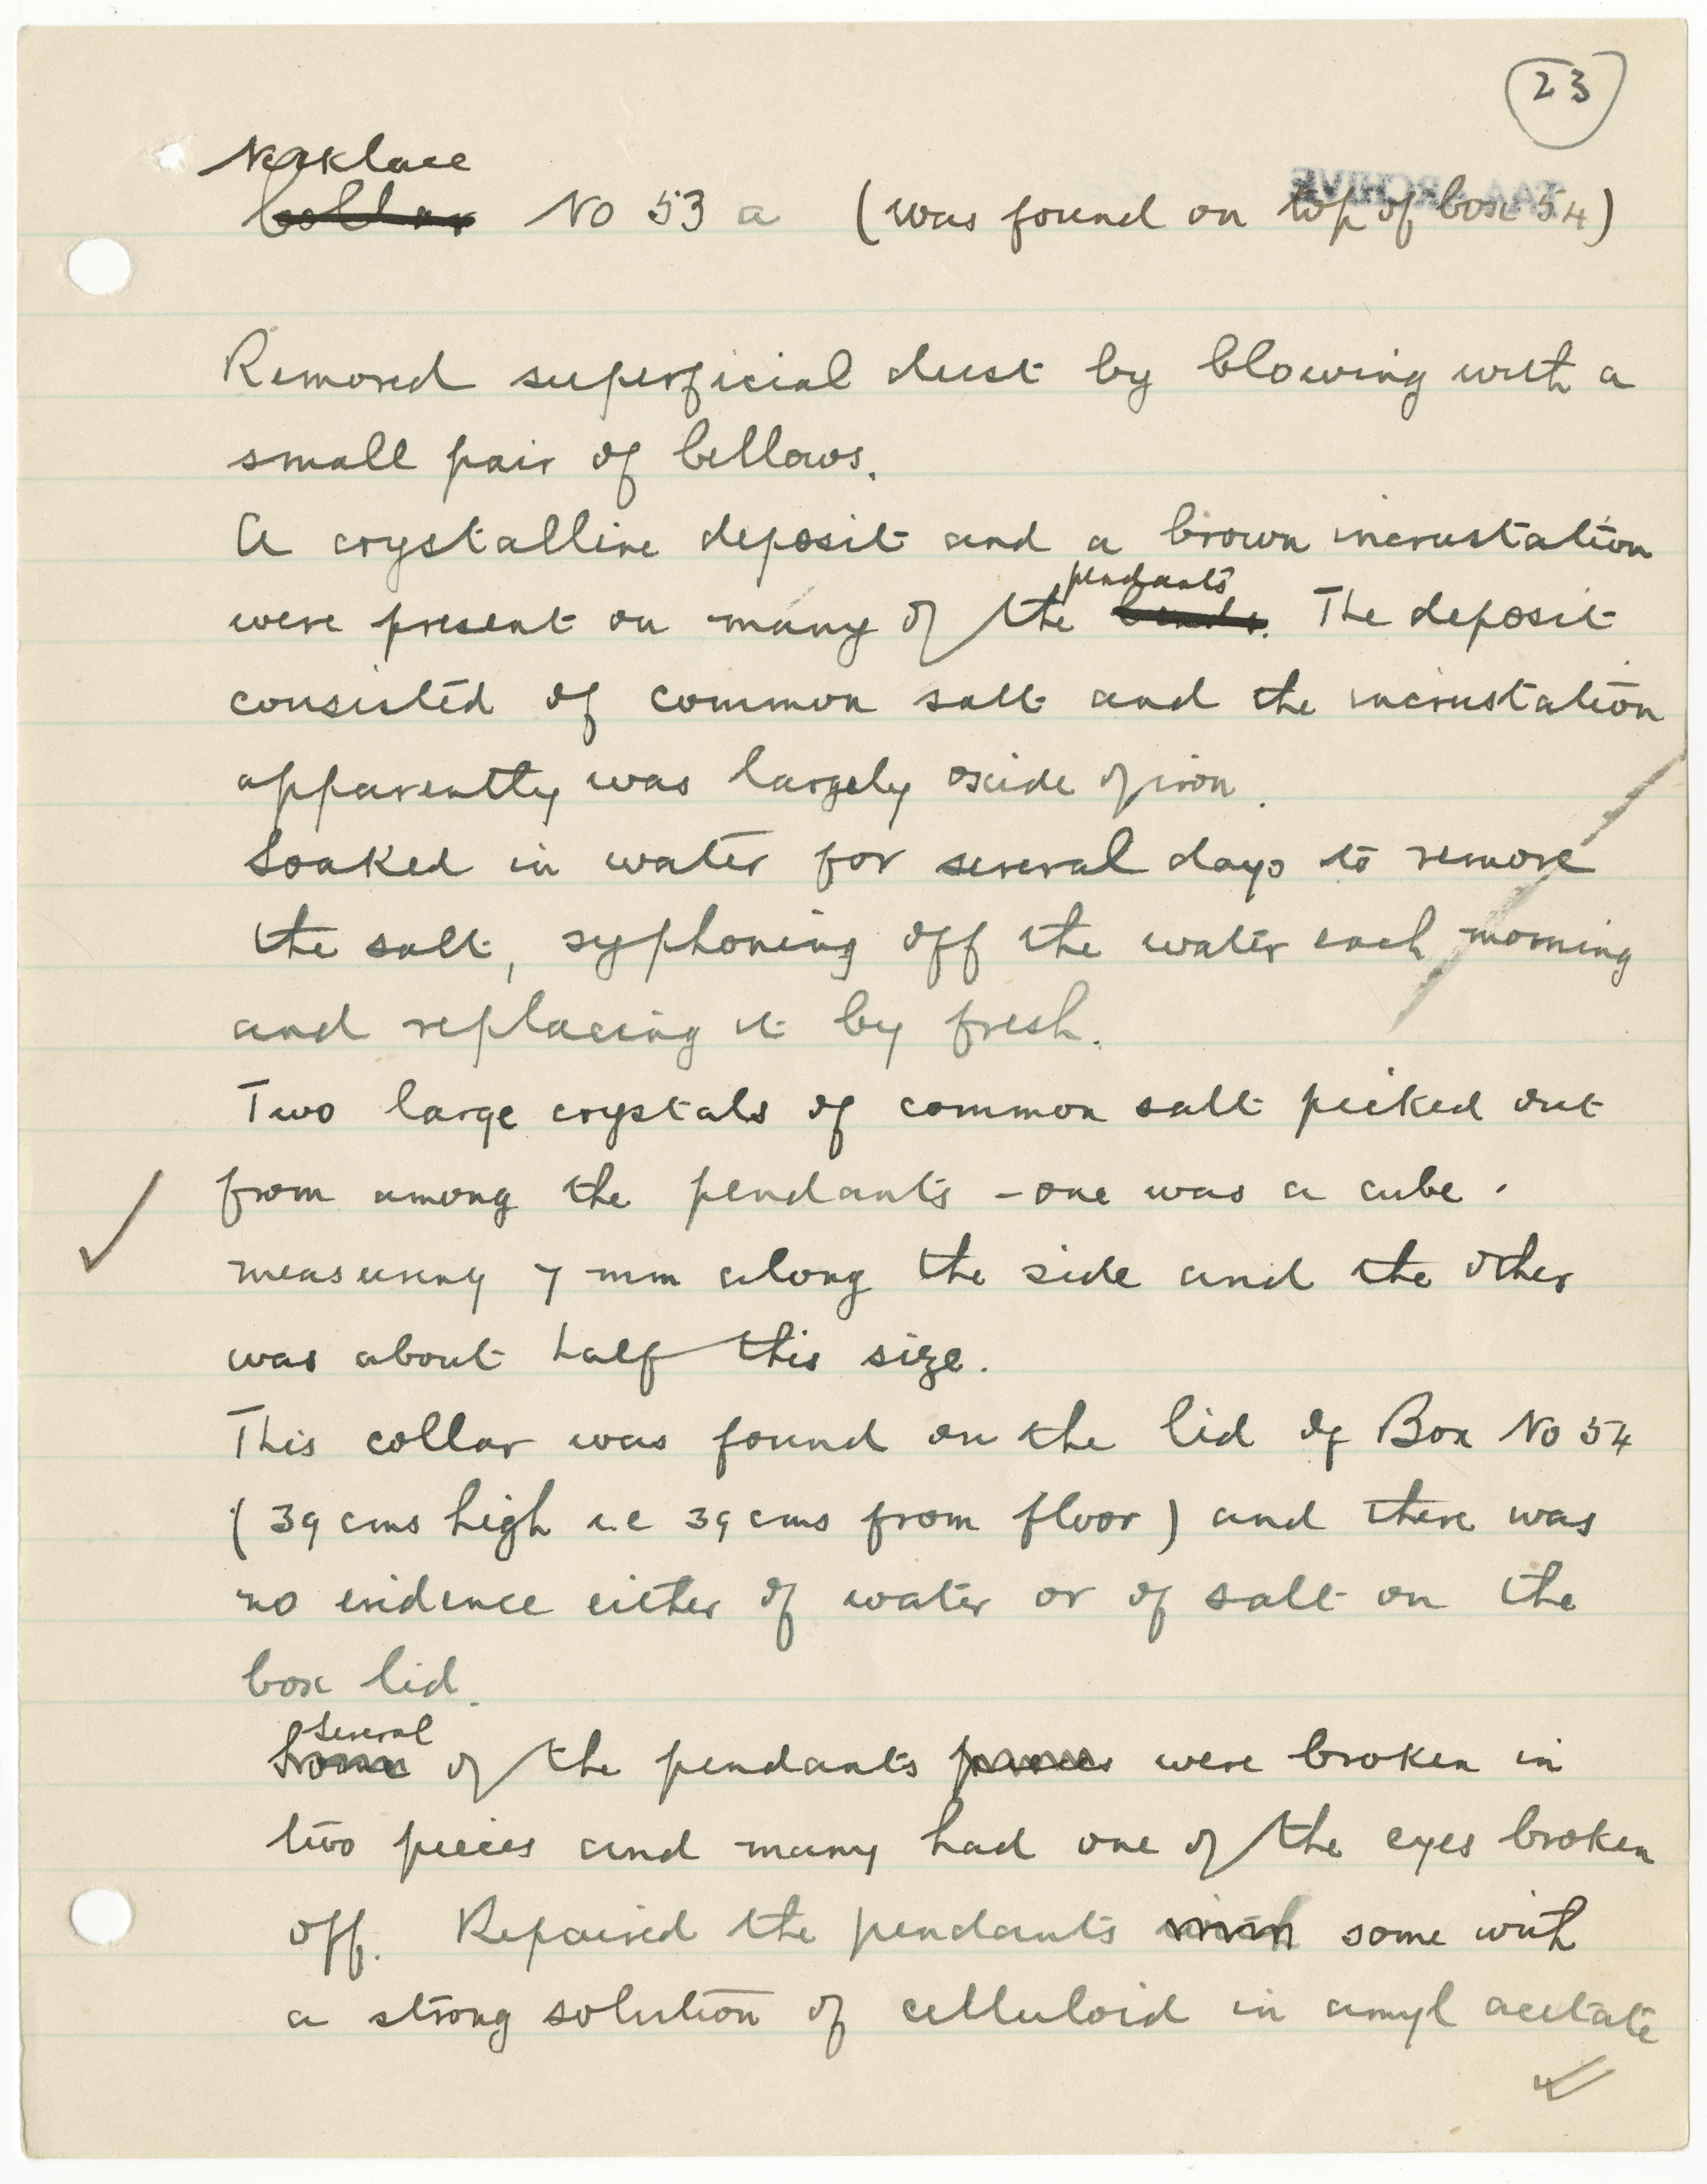 23
Necklace
Collar No 53 a (was found on top of box 54)
TAA ARCHIVE
Removed superficial dust by blowing with a
small pair of bellows.
A crystalline deposit and a brown incrustation
pendants
were present on many of the beads. The deposit
consisted of common salt and the incrustation
apparently was largely oxide of iron.
Soaked in water for several days to remove
the salt, syphoning off the water each morning
and replacing it by fresh.
Two large crystals of common salt picked out
from among the pendants - one was a cube.
measuring 7 mm along the side and the other
was about half this size.
This collar was found on the lid of Box No 54
(39 cms high i.e 39 cms from floor) and there was
no evidence either of water or of salt on the
box lid.
Several
Some of the pendants pieces were broken in
two pieces and many had one of the eyes broken
off. Repaired the pendants with some with
a strong solution of celluloid in amyl acetate